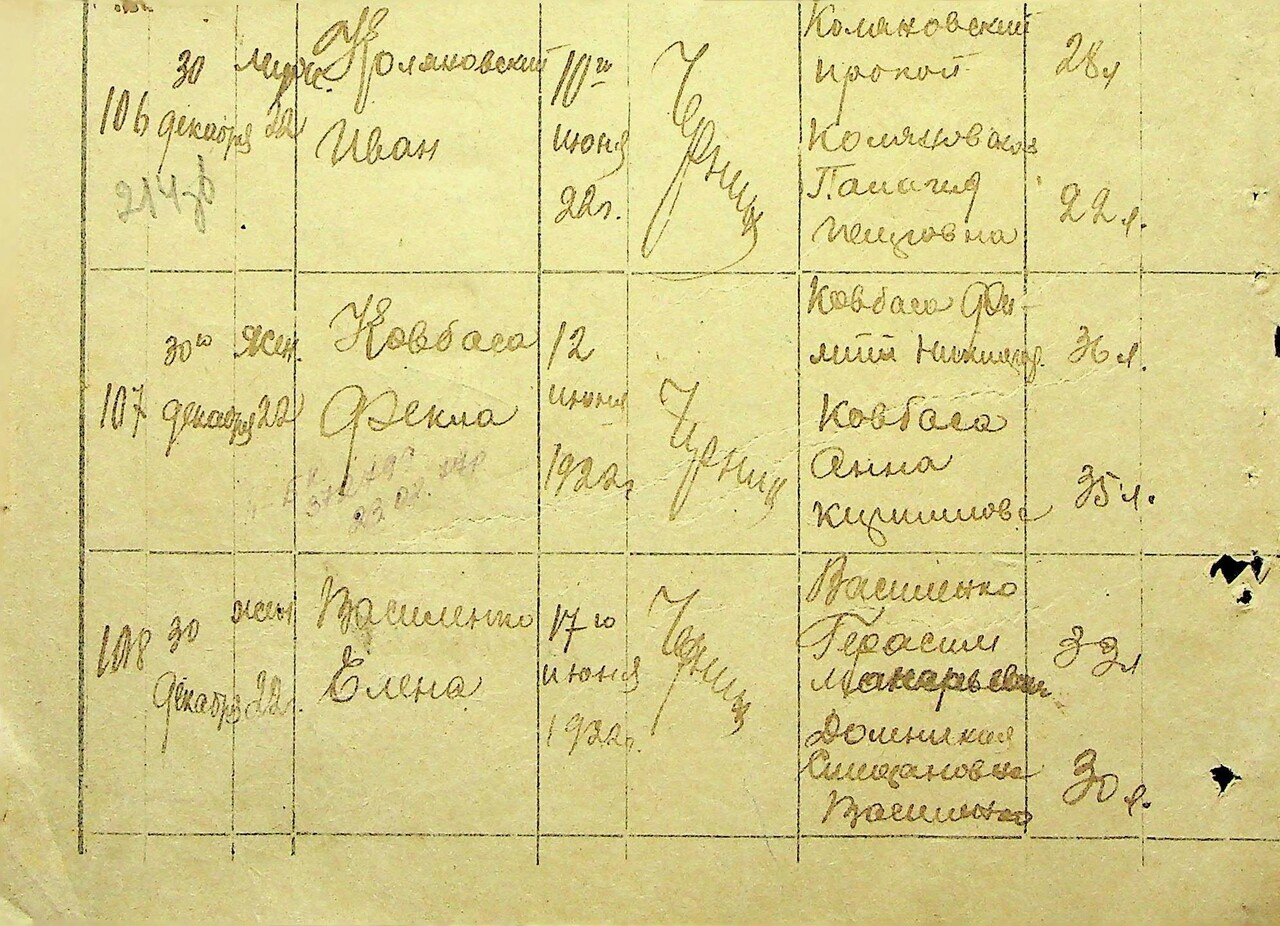 106
30
декабря 22
муж.
Коляновский
Иван
10го
июня
22г.
Коляновский
Прокоп
Коляновская
Палагия
Петровна
28л
22л.
107
30го
декабря 22
жен.
Ковбаса
Фекла
12
июня
1922г.
Ковбаса
Ковбаса
Анна
36л.
35л.
108
30
декабря 22г.
жен
Василенко
Елена
17го
июня
1922г.
Василенко
Герасим
Макарьевич
Домникия
Степановна
Василенко
33л
30л.